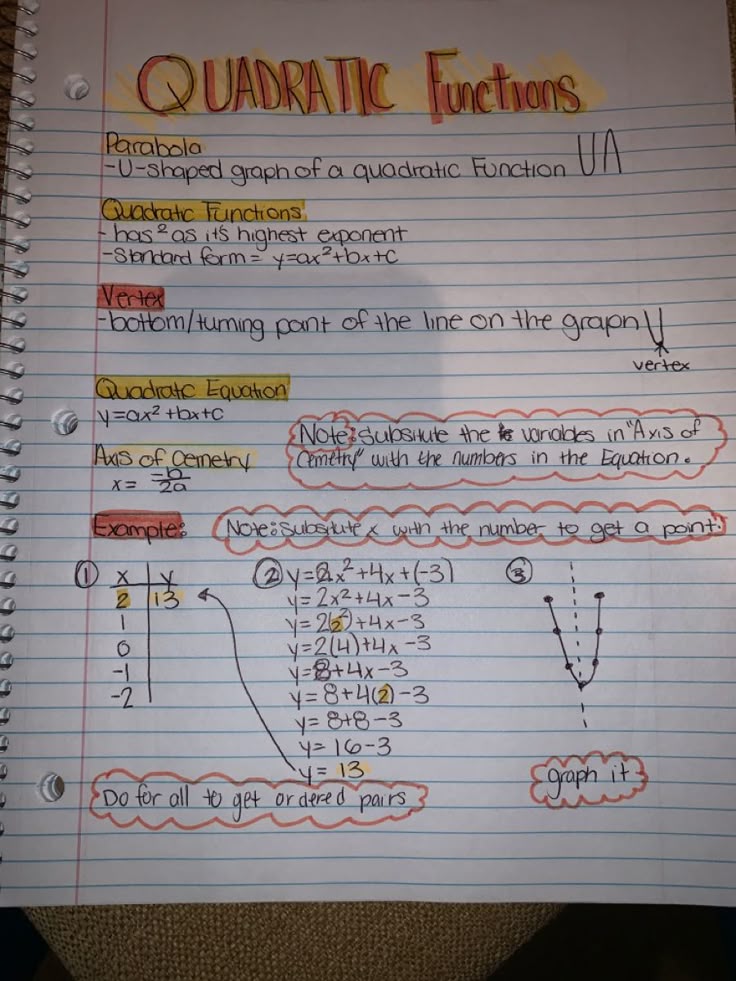 QUADRATIC Functions
Parabola
-U-shaped graph of a quadratic Function
Quadratic Functions
- has ² as it's highest exponent
-Standard form = y=ax²+bx+c
Vertex
-bottom/turning point of the line on the graph
vertex
Quadratic Equation
y=ax²+bx+c
Note: Subsitute the variables in "Axis of
Cemetry" with the numbers in the Equation.
Axis of Cemetry
x= -b/2a
Example:
Note: Subsitute x with the number to get a point.
① x y
2 13
1
0
-1
-2
② y=2x²+4x+(-3)
y=2x²+4x-3
y=2(2²)+4x-3
y=2(4)+4x-3
y=8+4x-3
y=8+4(2)-3
y=8+8-3
y=16-3
y=13
③
graph it
Do for all to get ordered pairs